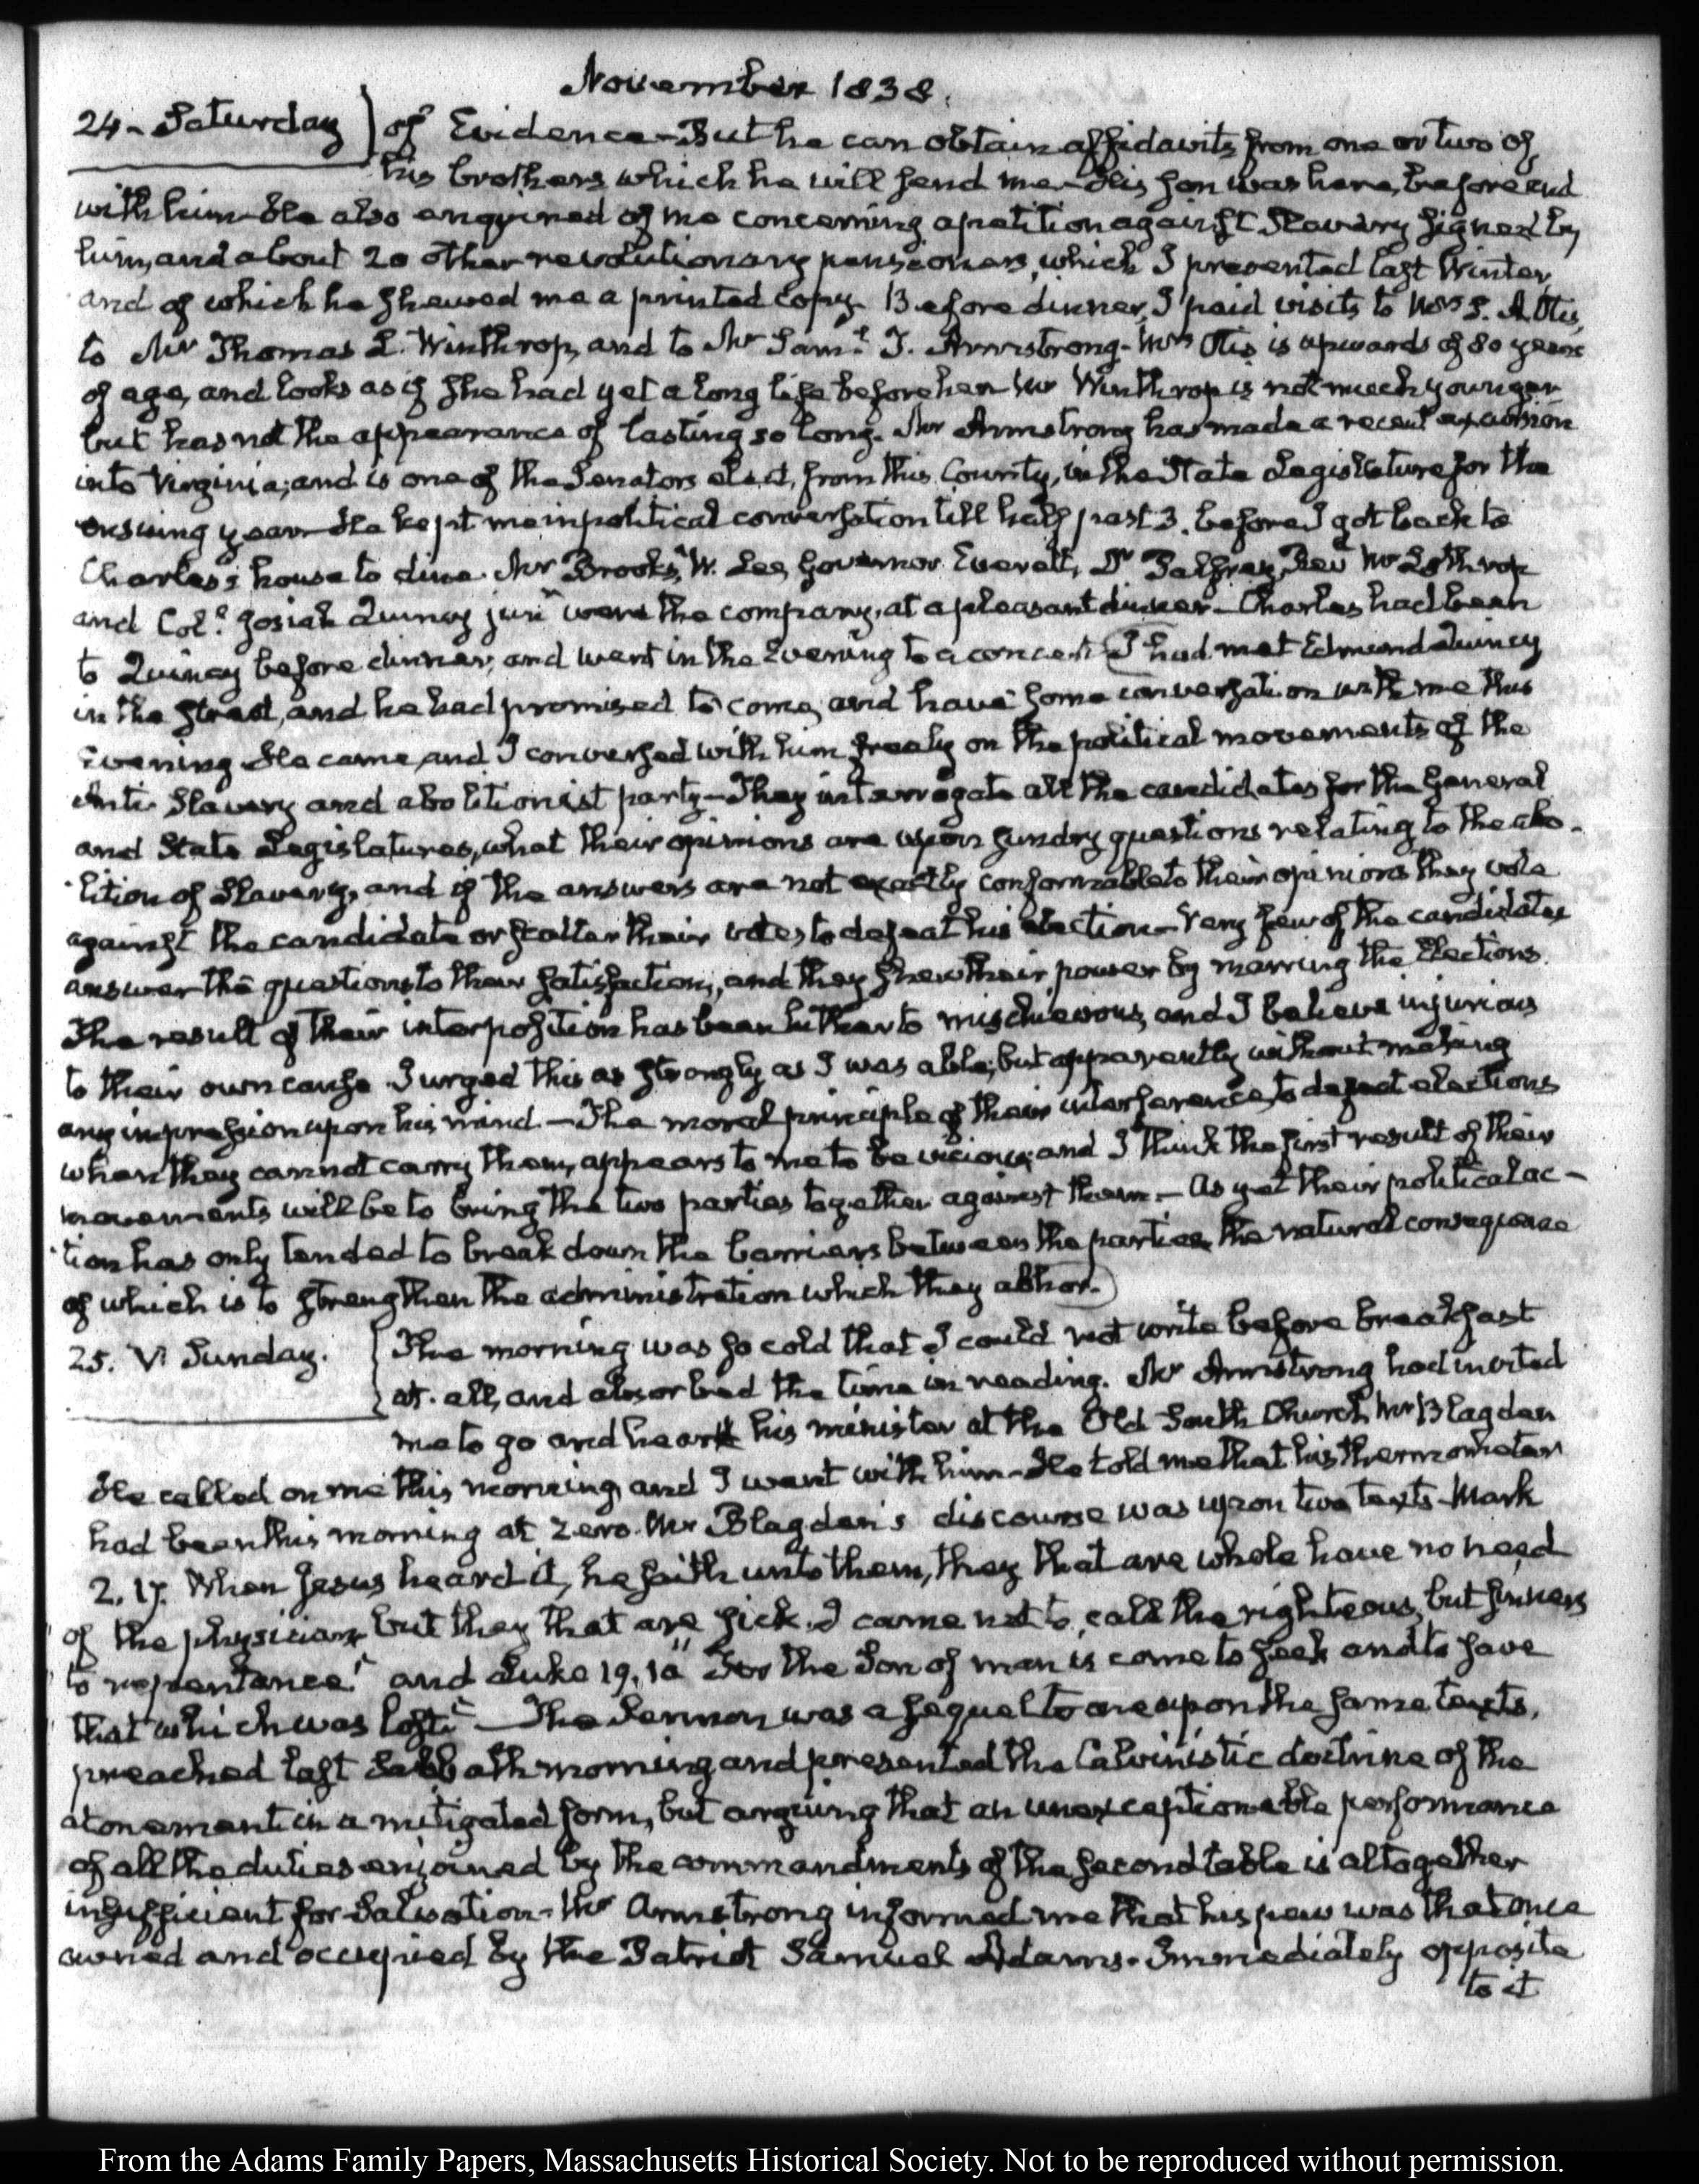 November 1838.
24 - Saturday } of Evidence - But he can obtain affidavits from one or two of
his brothers which he will send me - His son was here, before and
with him - He also enquired of me concerning a petition against Slavery signed by
him, and about 20 other revolutionary pensioners, which I presented last Winter,
and of which he shewed me a printed copy. Before dinner, I paid visits to Mrs S. A. Otis,
to Mr Thomas L. Winthrop, and to Mr Saml. T. Armstrong - Mrs Otis is upwards of 80 years
of age, and looks as if she had yet a long life before her Mr Winthrop is not much younger
but has not the appearance of lasting so long. Mr Armstrong has made a recent excursion
into Virginia; and is one of the Senators elect, from this County, in the State Legislature for the
ensuing year - He kept me in political conversation till half past 3. before I got back to
Charles's house to dine. Mr Brooks, W. Lee, Governor Everett, Dr Palfrey, Revd Mr Lothrop
and Coll. Josiah Quincy junr were the company, at a pleasant dinner - Charles had been
to Quincy before dinner, and went in the Evening to a concert. I had met Edmund Quincy
in the street, and he had promised to come, and have some conversation with me this
Evening He came, and I conversed with him freely on the political movements of the
Anti-Slavery and abolitionist party - They interrogate all the candidates for the General
and State Legislatures, what their opinions are upon sundry questions relating to the abo-
lition of Slavery, and if the answers are not exactly conformable to their opinions they vote
against the candidate or scatter their votes to defeat his election - Very few of the candidates
answer the questions to their satisfaction, and they shew their power by marring the Elections.
The result of their interposition has been hitherto mischievous, and I believe injurious
to their own cause I urged this as strongly as I was able; but apparently without making
any impression upon his mind. - The moral principle of their interference, to defeat elections
when they cannot carry them, appears to me to be vicious; and I think the first result of their
movements will be to bring the two parties together against them. - As yet their political ac-
tion has only tended to break down the barriers between the parties, the natural consequence
of which is to strengthen the administration which they abhor.
25. VI. Sunday. { The morning was so cold that I could not write before breakfast
at all, and absorbed the time in reading. Mr Armstrong had invited
me to go and hear his minister at the Old South Church Mr Blagden
He called on me this morning and I went with him - He told me that his thermometer
had been this morning at zero. Mr Blagden's discourse was upon two texts - Mark
2. 17. When Jesus heard it, he saith unto them, they that are whole have no need
of the physician, but they that are sick. I came not to call the righteous, but sinners
to repentance." and Luke 19. 10 "For the Son of man is come to seek and to save
that which was lost." - The Sermon was a sequel to one upon the same texts,
preached last Sabbath morning and presented the Calvinistic doctrine of the
atonement in a mitigated form, but arguing that an unexceptionable performance
of all the duties enjoined by the commandments of the second table is altogether
insufficient for Salvation - Mr Armstrong informed me that his pew was that once
owned and occupied by the Patriot Samuel Adams. Immediately opposite
to it
From the Adams Family Papers, Massachusetts Historical Society. Not to be reproduced without permission.